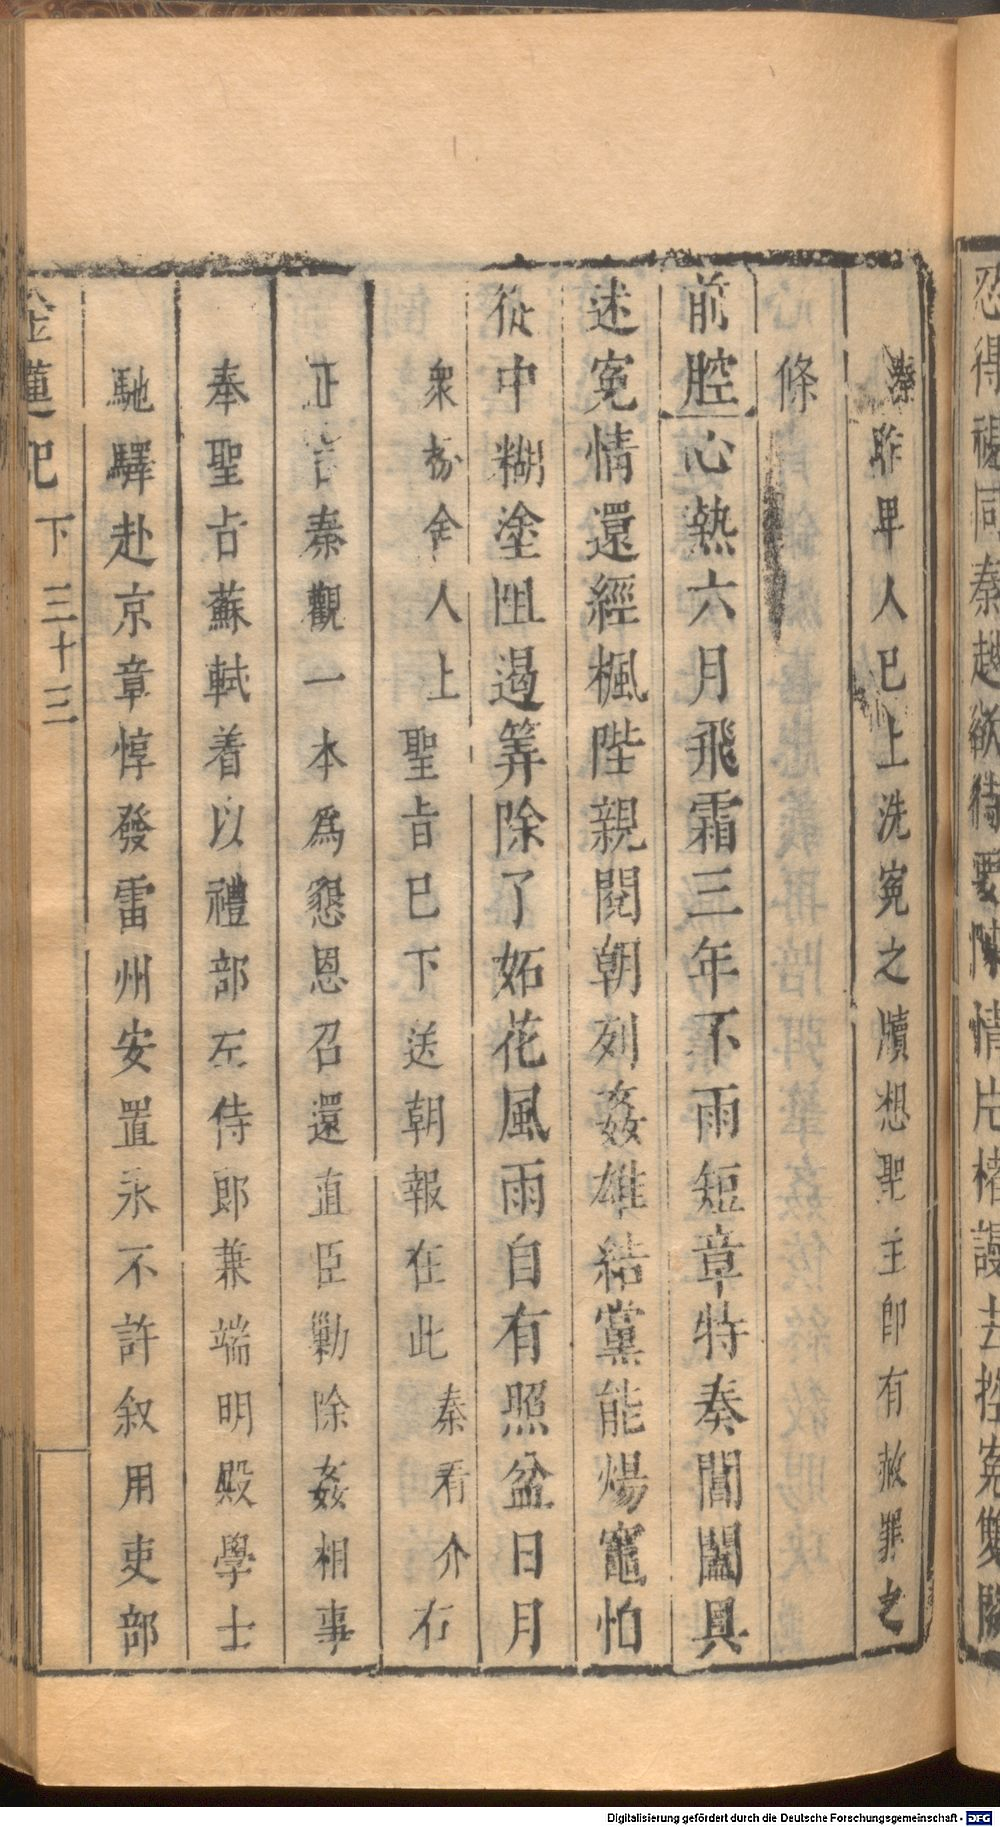 忍得禍同秦越欲待要陳情
權謾去控寃雙闕
秦昨畢人已上洗寃之牘想聖主卽有赦罪之
條
前腔心熱六月飛霜三年不雨短章特奏閶闔具
述寃情還經楓陛親閱朝列姦雄結黨能煬竈怕
從中糊塗阻遏筭除了妬花風雨自有照盆日月
衆扮舍人上聖旨已下送朝報在此秦看介右
正言秦觀一本爲懇恩召還直臣勦除姦相事
奉聖旨蘇軾着以禮部左侍郎兼端明殿學士
馳驛赴京章惇發雷州安置永不許叙用吏部
金蓮記 下 三十三
Digitalisierung gefördert durch die Deutsche Forschungsgemeinschaft - DFG